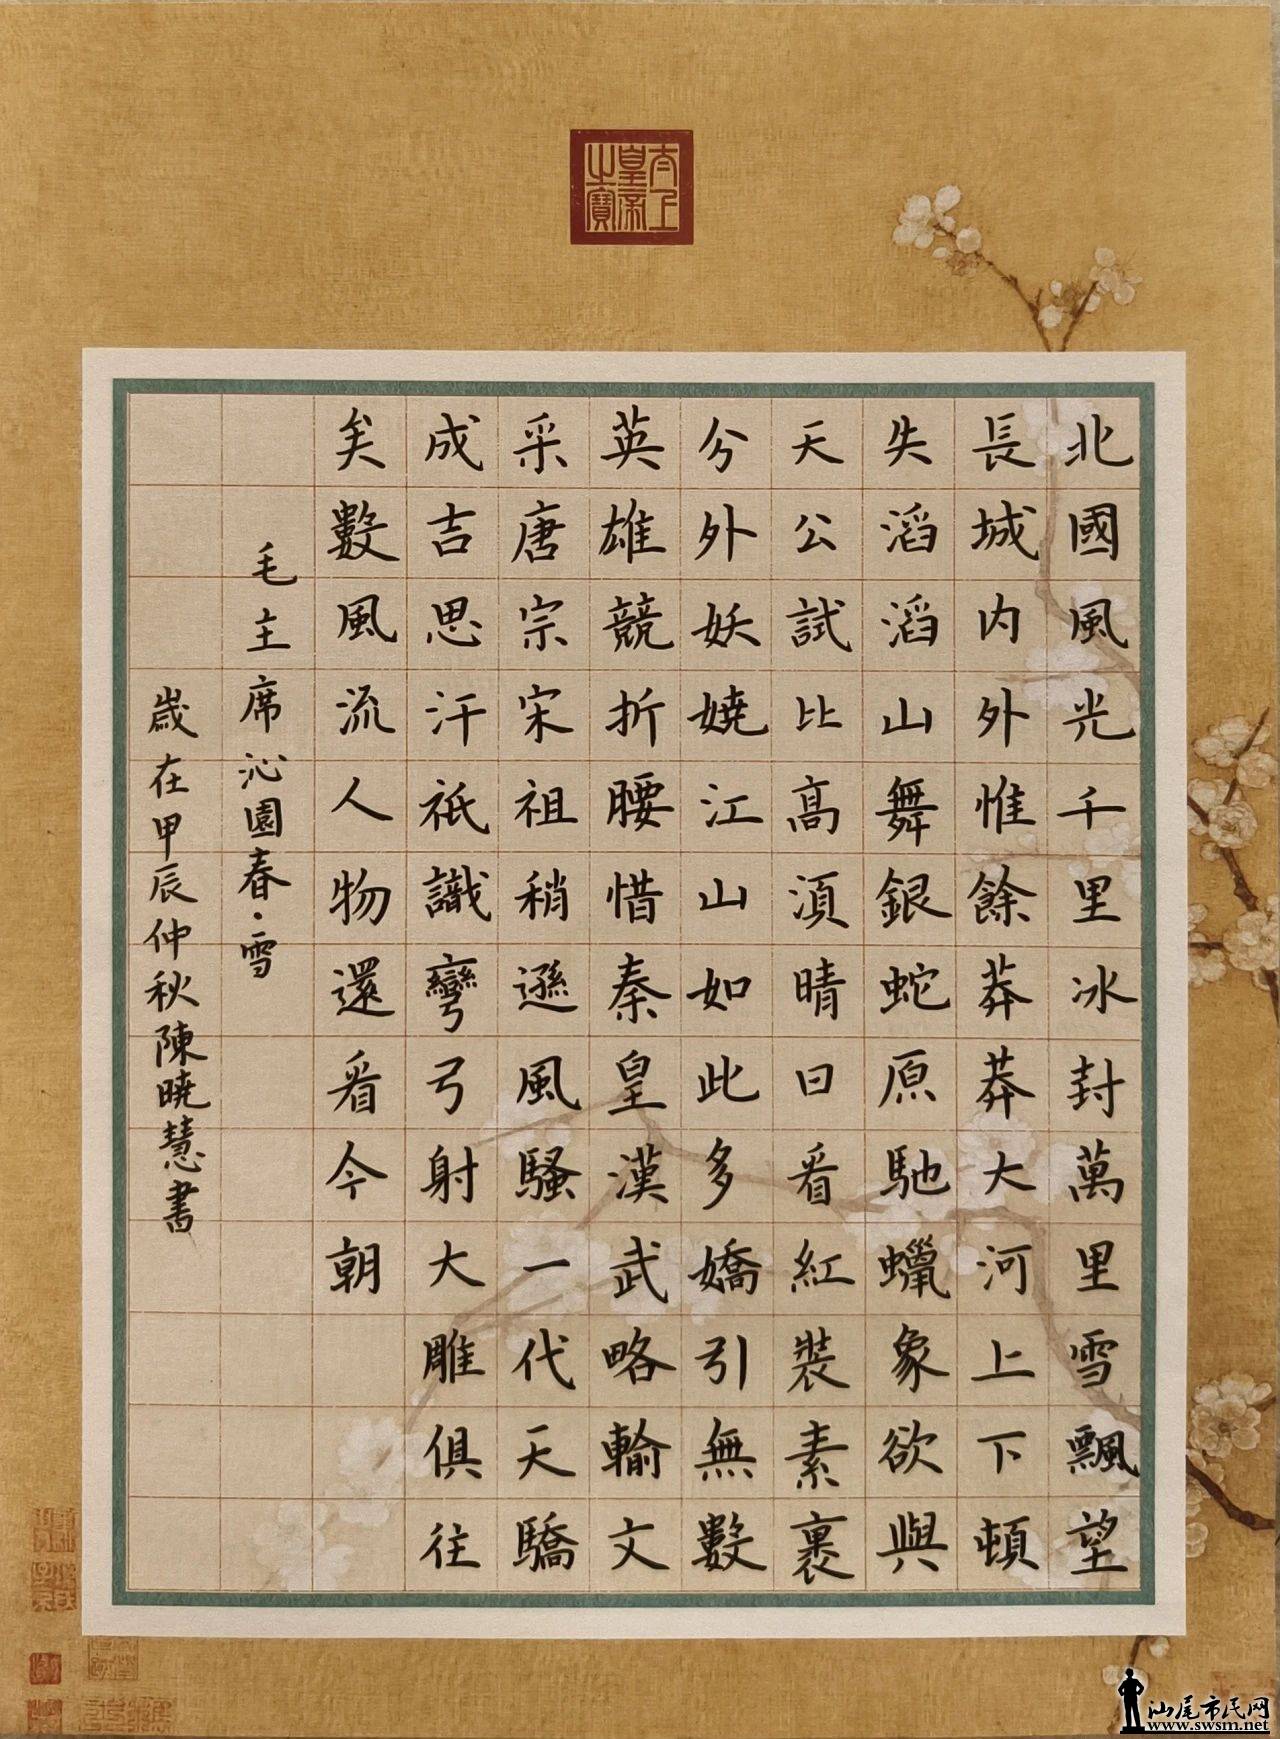 太上皇帝之寶
北國風光千里冰封萬里雪飄望
長城内外惟餘莽莽大河上下頓
失滔滔山舞銀蛇原馳蠟象欲與
天公試比高須晴日看紅裝素裹
分外妖嬈江山如此多嬌引無數
英雄競折腰惜秦皇漢武略輸文
采唐宗宋祖稍遜風騷一代天驕
成吉思汗祇識彎弓射大雕俱往
矣數風流人物還看今朝
毛主席沁園春·雪
歲在甲辰仲秋陳曉慧書
汕尾市民网
www.swsm.net